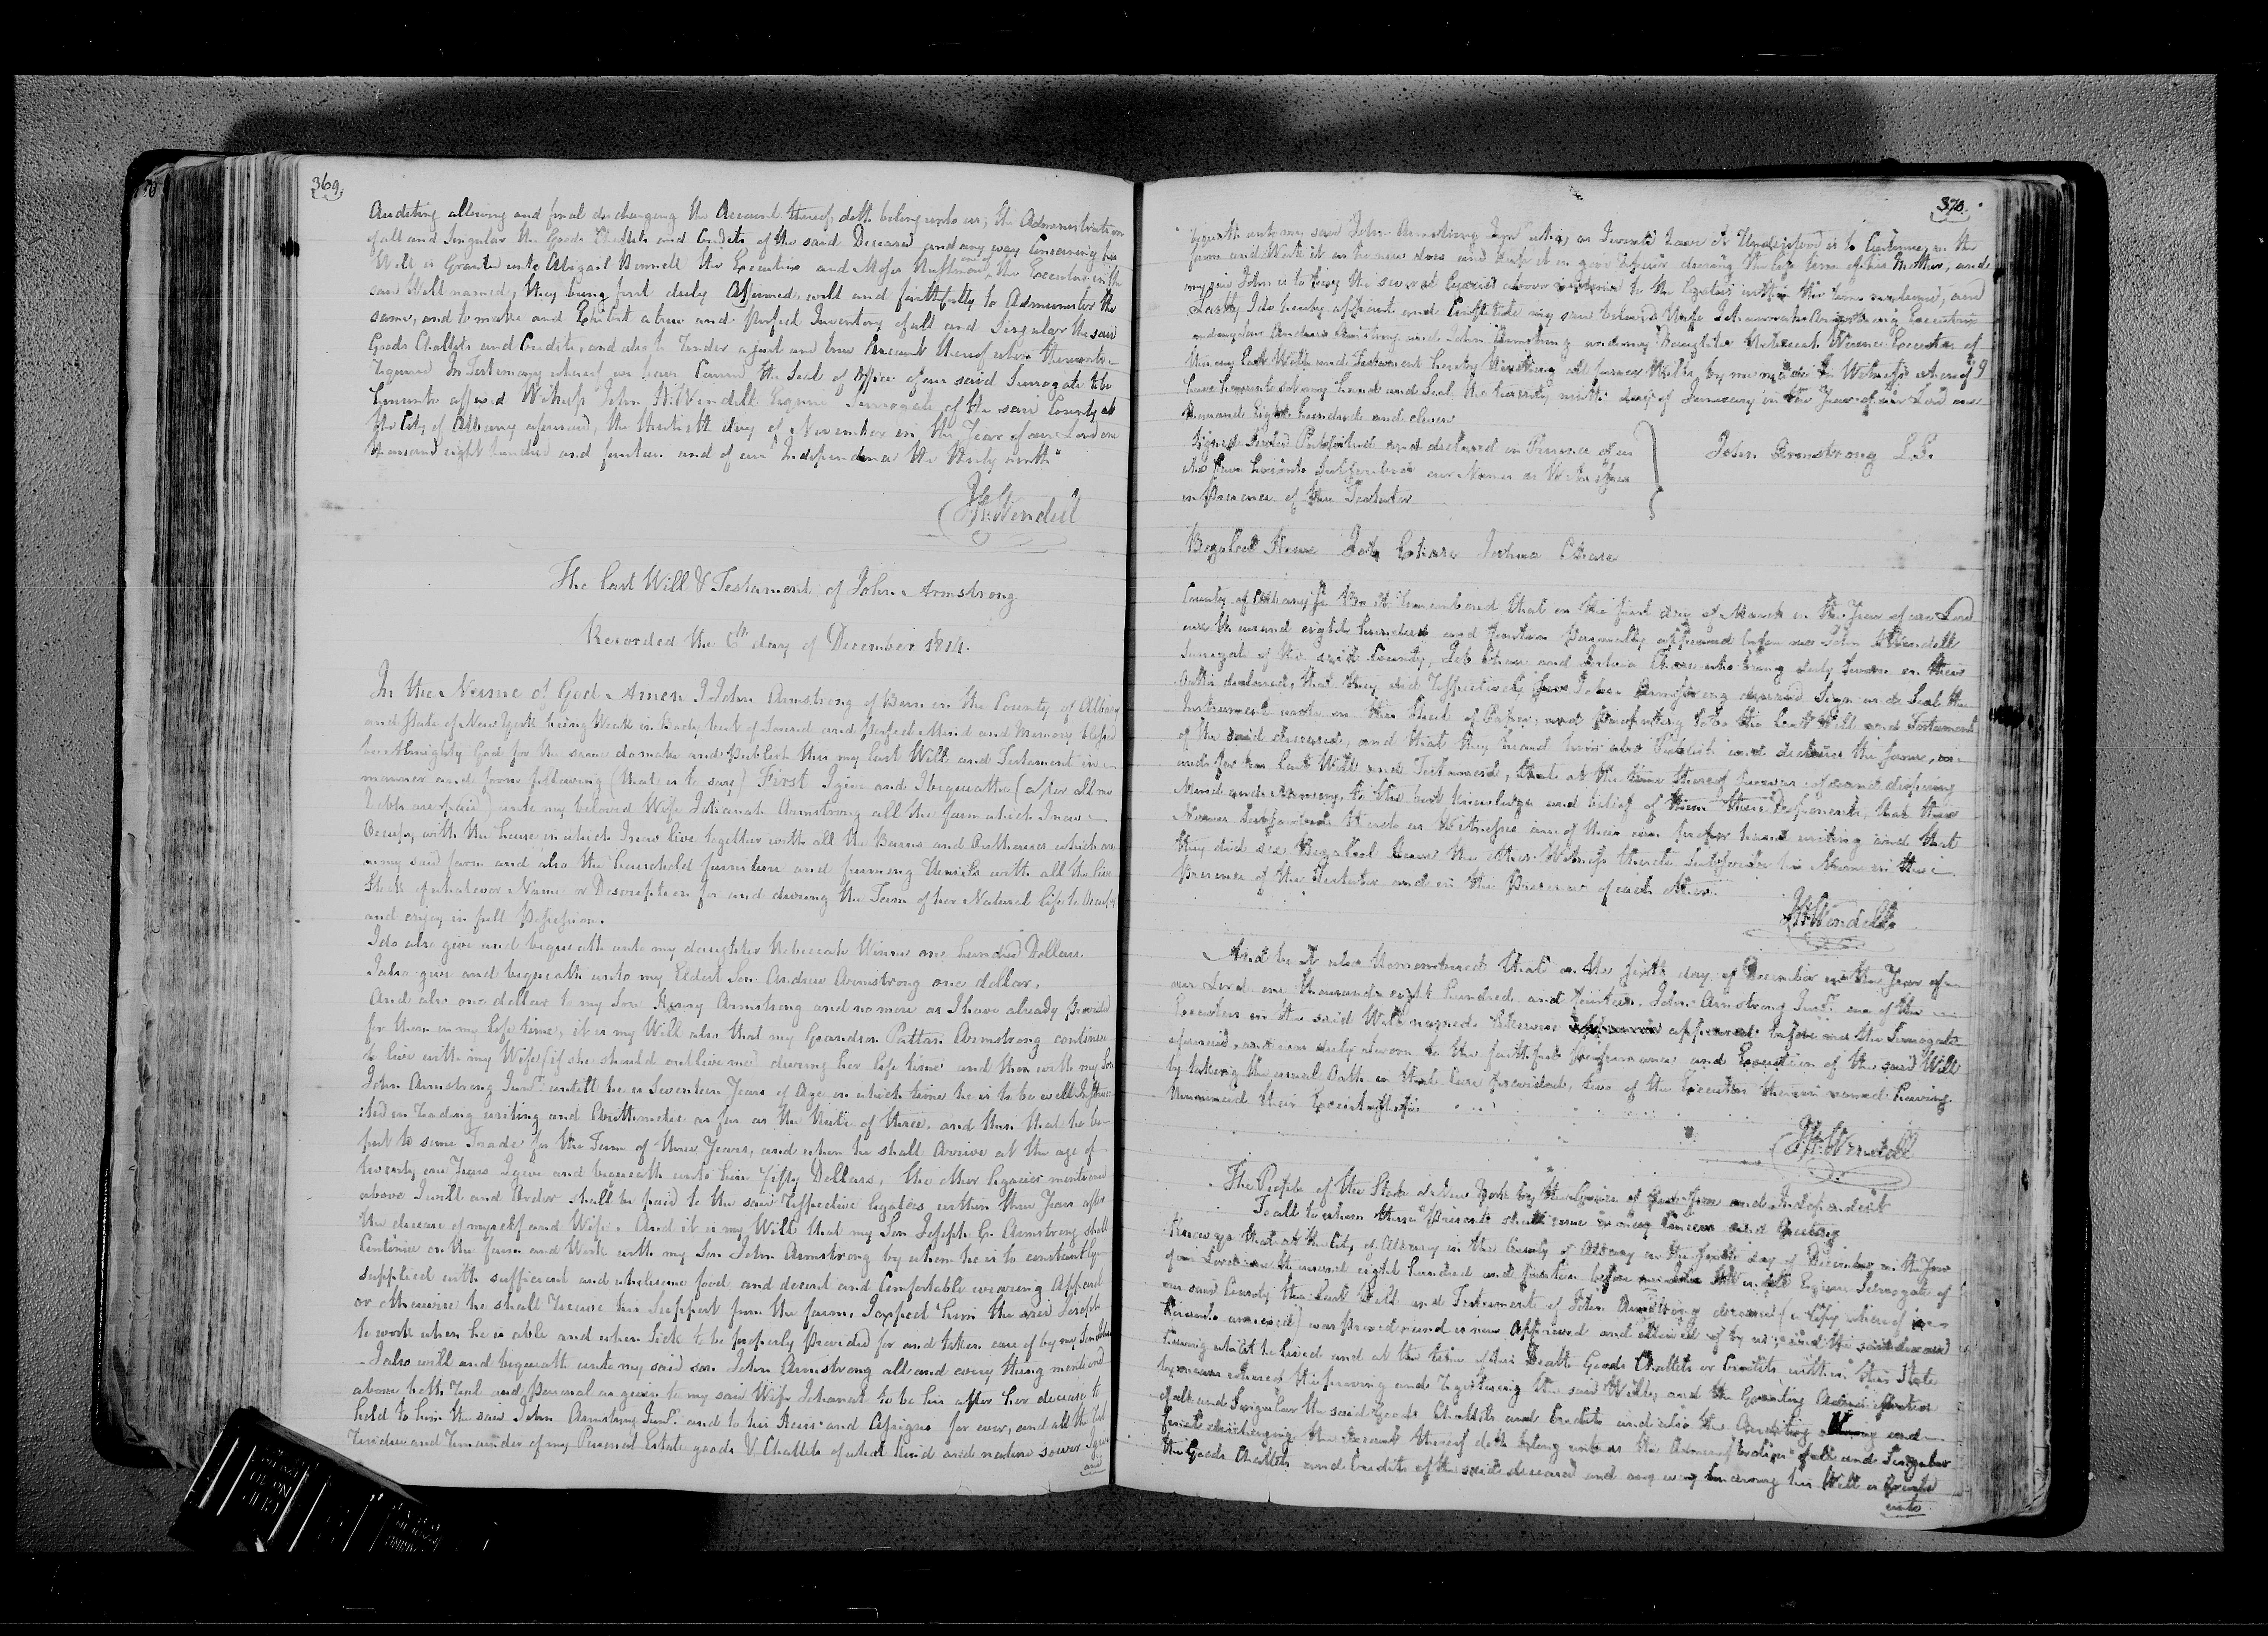 369.
Auditing allowing and final discharging the Account thereof, doth belong unto us; the Administration
of all and Singular the Goods Chattels and Credits of the said Deceased and any way Concerning his
Will is Granted unto Abigail Bennett the Executrix and Moses one of the Executors in the
said Will named, they being first duly Affirmed well and faithfully to Administer the
same, and to make and Exhibit a true and Perfect Inventory of all and Singular the said
Goods Chattels and Credits, and also to Render a just and true Account thereof when thereunto
Required In Testimony whereof we have Caused the Seal of Office of our said Surrogate to be
hereunto affixed Witness John H Wendell Esquire Surrogate of the said County at
the City of Albany aforesaid, the thirtieth day of November in the Year of our Lord one
thousand eight hundred and fourteen and of our Independence the thirty ninth
J H Wendell
The Last Will & Testament of John Armstrong
Recorded the 6th day of December 1814.
In the Name of God Amen I John Armstrong of Bern in the County of Albany
and State of New York being Weak in Body but of Sound and Perfect Mind and Memory blessed
be Almighty God for the same do make and Publish this my last Will and Testament in
manner and form following (that is to say) First I give and I bequeathe (after all my
Debts are paid) unto my beloved Wife Johanah Armstrong all the farm which I now
Occupy, with the house in which I now live together with all the Barns and Outhouses which are
on my said farm and also the household furniture and farming Utensils with all the live
Stock of whatever Name or Description for and during the Term of her Natural life to Occupy
and enjoy in full Possession.
I do also give and bequeath unto my daughter Rebeccah Winne one hundred Dollars.
I also give and bequeath unto my Eldest Son Andrew Armstrong one dollar.
And also one dollar to my Son Henry Armstrong and no more as I have already Provided
for them in my life time, it is my Will also that my Grandson Armstrong continue
to live with my Wife (if she should outlive me) during her life time and then with my Son
John Armstrong Junr. untill he is Seventeen Years of Age on which time he is to be well Instruc
:ted in Reading writing and Arithmetic as far as the Rule of three, and then that he be
put to some Trade for the Term of three Years, and when he shall Arrive at the age of
twenty one Years I give and bequeath unto him fifty Dollars, the other legacies mentioned
above I will and Order shall be paid to the said Respective legatees within three Years after
the decease of myself and Wife. And it is my Will that my Son Joseph G. Armstrong shall
Continue on the farm and Work with my Son John Armstrong by whom he is to constantly
supplied with sufficient and wholesome food and decent and Comfortable wearing Apparel
or otherwise he shall Receive his Support from the farm, I expect him the said Joseph
to work when he is able and when Sick to be properly Provided for and taken care of by my Son John
I also will and bequeath unto my said son John Armstrong all and every thing mentioned
above both Real and Personal as given to my said Wife Johanah to be his after her decease to
hold to him the said John Armstrong Junr. and to his Heirs and Assigns for ever, and all the Rest
Residue and Remainder of my Personal Estate goods & Chattels of what kind and nature soever I give
and
370.
bequeath unto my said John Armstrong Junr who, as I would have it Understood is to Continue on the
farm and Work it as he now does and keep it in good repair during the life time of his Mother, and
my said John is to pay the several legacies above to the legatees within the time mentioned, and
Lastly, I do hereby appoint and Constitute my said beloved Wife Johannah Armstrong Executrix
and my Son Andrew Armstrong and John Armstrong and my Daughter Rebecca Winne Executors of
this my last Will and Testament hereby Revoking all former Wills by me made In Witness whereof I
have hereunto set my hand and Seal the twenty ninth day of January in the Year of our Lord one
thousand Eight hundred and eleven
Signed Sealed Published and declared in Presence of us
who have hereunto Subscribed our Names as Witnesses
in Presence of the Testator
John Armstrong L.S.
Bezaleel Howe Job Chase Joshua Chase
County of Albany Ss. Be it Remembered that on the first day of March in the Year of our Lord
one thousand eight hundred and fourteen Personally appeared before me John H Wendell
Surrogate of the said County, Job Chase and Joshua Chase who being duly Sworn on their
Oaths declared, that they did Respectively see John Armstrong deceased Sign and Seal the
Instrument wrote on this Sheet of Paper, and Purporting to be the last Will and Testament
of the said deceased, and that they heard him also Publish and declare the same, as
and for his last Will and Testament, that at the time thereof he was of sound disposing
Mind and Memory, to the best knowledge and belief of them these Deponents, that their
Names Subscribed thereto as Witnesses are of their own proper hand writing and that
they did see Bezaleel Howe the other Witness thereto Subscribe his Name in the
Presence of the Testator and in the Presence of each other.
J H Wendell
And be it also Remembered that on the fifth day of December in the Year of
our Lord one thousand eight hundred and fourteen, John Armstrong Junr. one of the
Executors in the said Will named likewise appeared before me the Surrogate
aforesaid and was duly sworn to the faithful performance and Execution of the said Will
by taking the usual Oath in that Case provided, two of the Executors therein named having
Renounced their Executorship
J H Wendell
The People of the State of New York by the Grace of God Free and Independent
To all to whom these Presents shall come or may Concern send Greeting
Know ye that at the City of Albany in the County of Albany on the fifth day of December in the Year
of our Lord one thousand eight hundred and fourteen before John H Wendell Esquire Surrogate of
our said County, the last Will and Testament of John Armstrong deceased (a Copy whereof is
hereunto annexed) was proved and is now Approved and allowed of by us; and the said deceased
having whilst he lived and at the time of his Death Goods Chattels or Credits, within this State
by means whereof the proving and Registering the said Will, and the Granting Administration
of all and Singular the said Goods Chattels and Credits and also the Auditing allowing and
final discharging the Account thereof doth belong unto us the Administration of all and Singular
the Goods Chattels and Credits of the said deceased and any way Concerning his Will is Granted
unto